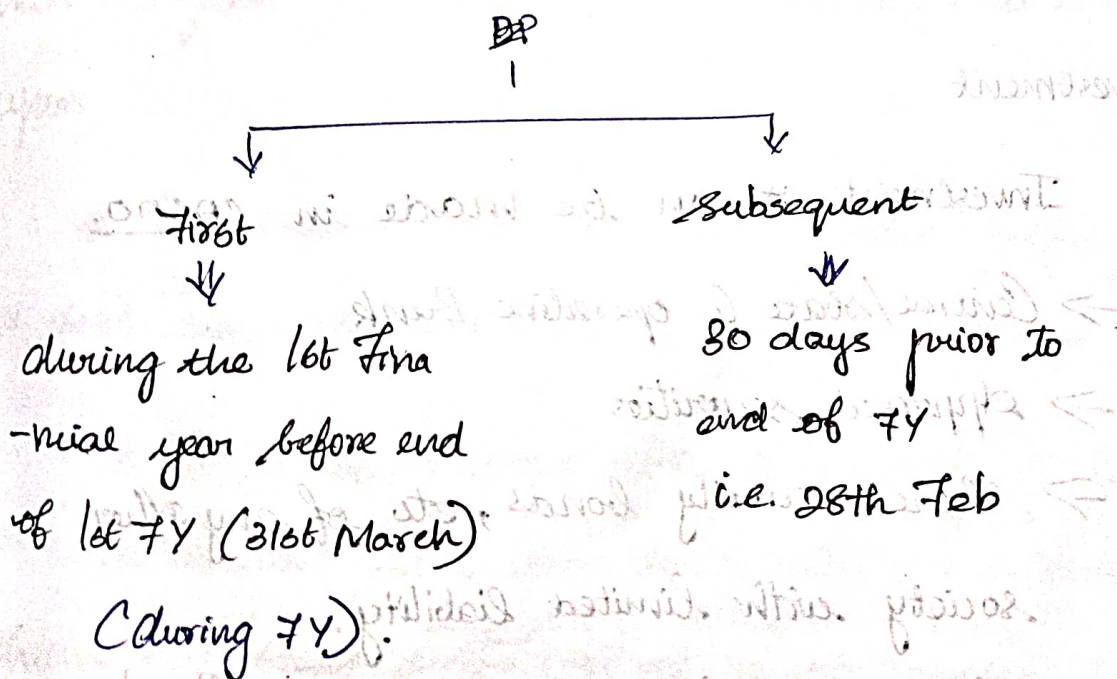 First
during the 1st Fina
-ncial year before end
of 1st FY (31st March)
(during FY).
Subsequent
30 days prior to
end of FY
i.e. 28th Feb